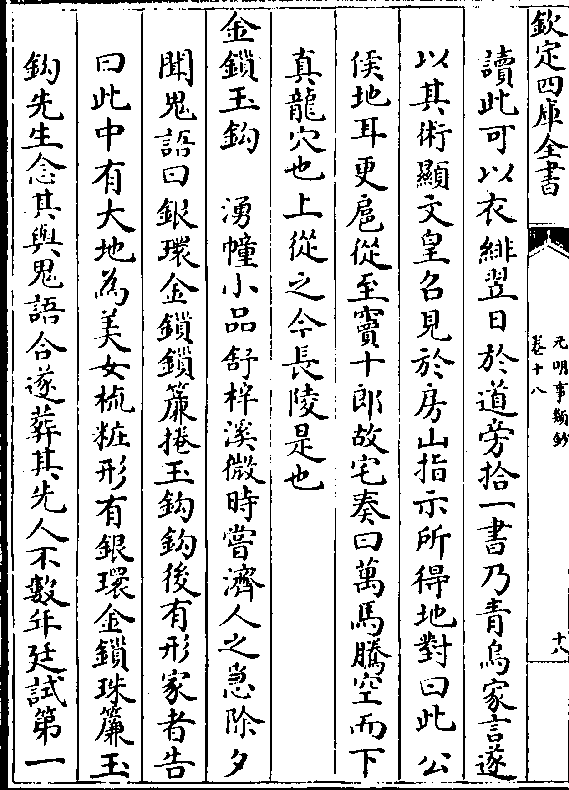 欽定四庫全書
元明事類鈔
卷十八
十八
讀此可以衣緋翌日於道旁拾一書乃青烏家言遂
以其術顯文皇召見於房山指示所得地對曰此公
侯地耳更扈從至竇十郎故宅奏曰萬馬騰空而下
真龍穴也上從之今長陵是也
金鎖玉鈎　湧幢小品舒梓溪微時嘗濟人之急除夕
聞鬼語曰銀環金鎖鎖簾捲玉鈎鈎後有形家者告
曰此中有大地為美女梳粧形有銀環金鎖珠簾玉
鈎先生念其與鬼語合遂葬其先人不數年廷試第一